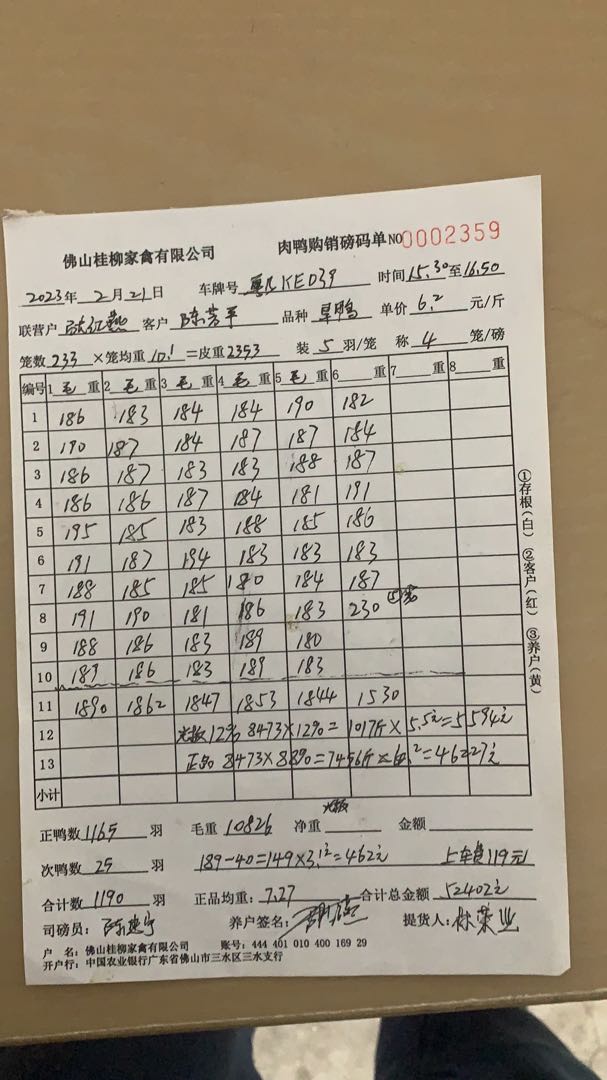 佛山桂柳家禽有限公司 肉鸭购销磅码单 NO 0002359
2023年 2月21日 车牌号 粤 KED39 时间15.30至16.50
联营户 客户 陈芳平 品种 旱鸭 单价 6.2 元/斤
笼数 233 ×笼均重 10.1 =皮重 2353 装 5 羽/笼 称 4 笼/磅
编号 1 毛 重 2 毛 重 3 毛 重 4 毛 重 5 毛 重 6 重 7 重 8 重
1 186 183 184 184 190 182
2 190 187 184 187 187 184
3 186 187 183 183 188 187
4 186 186 187 184 181 191
5 195 185 183 188 185 186
6 191 187 194 183 183 183
7 188 185 185 180 184 187
8 191 190 181 186 183 230 ⑤笼
9 188 186 183 189 180
10 189 186 183 189 183
11 1890 1862 1847 1853 1844 1530
12 12% 8473×12%=1017斤×5.5元=5594元
13 正品 8473×88%=7456斤×6.2=46227元
小计
正鸭数 1165 羽 毛重 10826 净重 金额
次鸭数 25 羽 189-40=149×3.1元=462元 上车费119元
合计数 1190 羽 正品均重: 7.27 合计总金额 52402元
司磅员: 养户签名: 提货人: 林荣业
户 名: 佛山桂柳家禽有限公司 账号: 444 401 010 400 169 29
开户行: 中国农业银行广东省佛山市三水区三水支行
①存根(白) ②客户(红) ③养户(黄)